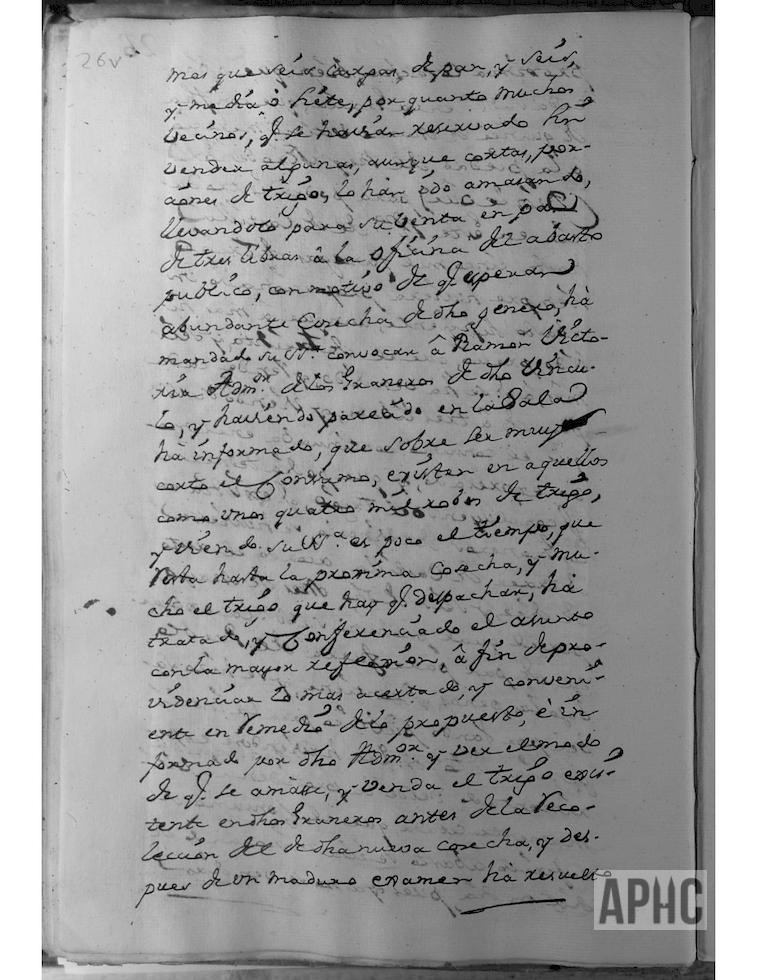 26v
mas que seis cargas de pan, y seis
y media ò siete, por quanto muchos
vecinos, q.e se havian reservado sin
vender algunas, aunque cortas, por-
ciones de trigo, lo hàn ido amasando,
llevandolo para su venta en pan
de tres libras â la oficina del abasto
publico, con motivo de q.e esperan
abundante Cosecha de dho genero, hà
mandado su S.a convocar â Ramon Victo-
ria Adm.or de los Graneros de dho Vincu-
lo, y haviendo parecido en la Sala
hà informado, que sobre ser muy
corto el Consumo, existen en aquellos
como unos quatro mil robos de trigo,
y viendo su S.a es poco el tiempo, que
resta hasta la proxîma Cosecha, y mu-
cho el trigo que hay q.e despachar, hà
tratado, y Conferenciado el asunto
con la mayor reflexion, â fin de pro-
videnciar lo mas acertado, y conveni-
ente en remedio de lo propuesto, è in
formado por dho Adm.or y ver el modo
de q.e se amase, y venda el trigo exis-
tente en dhos Graneros antes de la reco-
lección de dha nueva cosecha, y des-
pues de un maduro examen hà resuelto
APHC